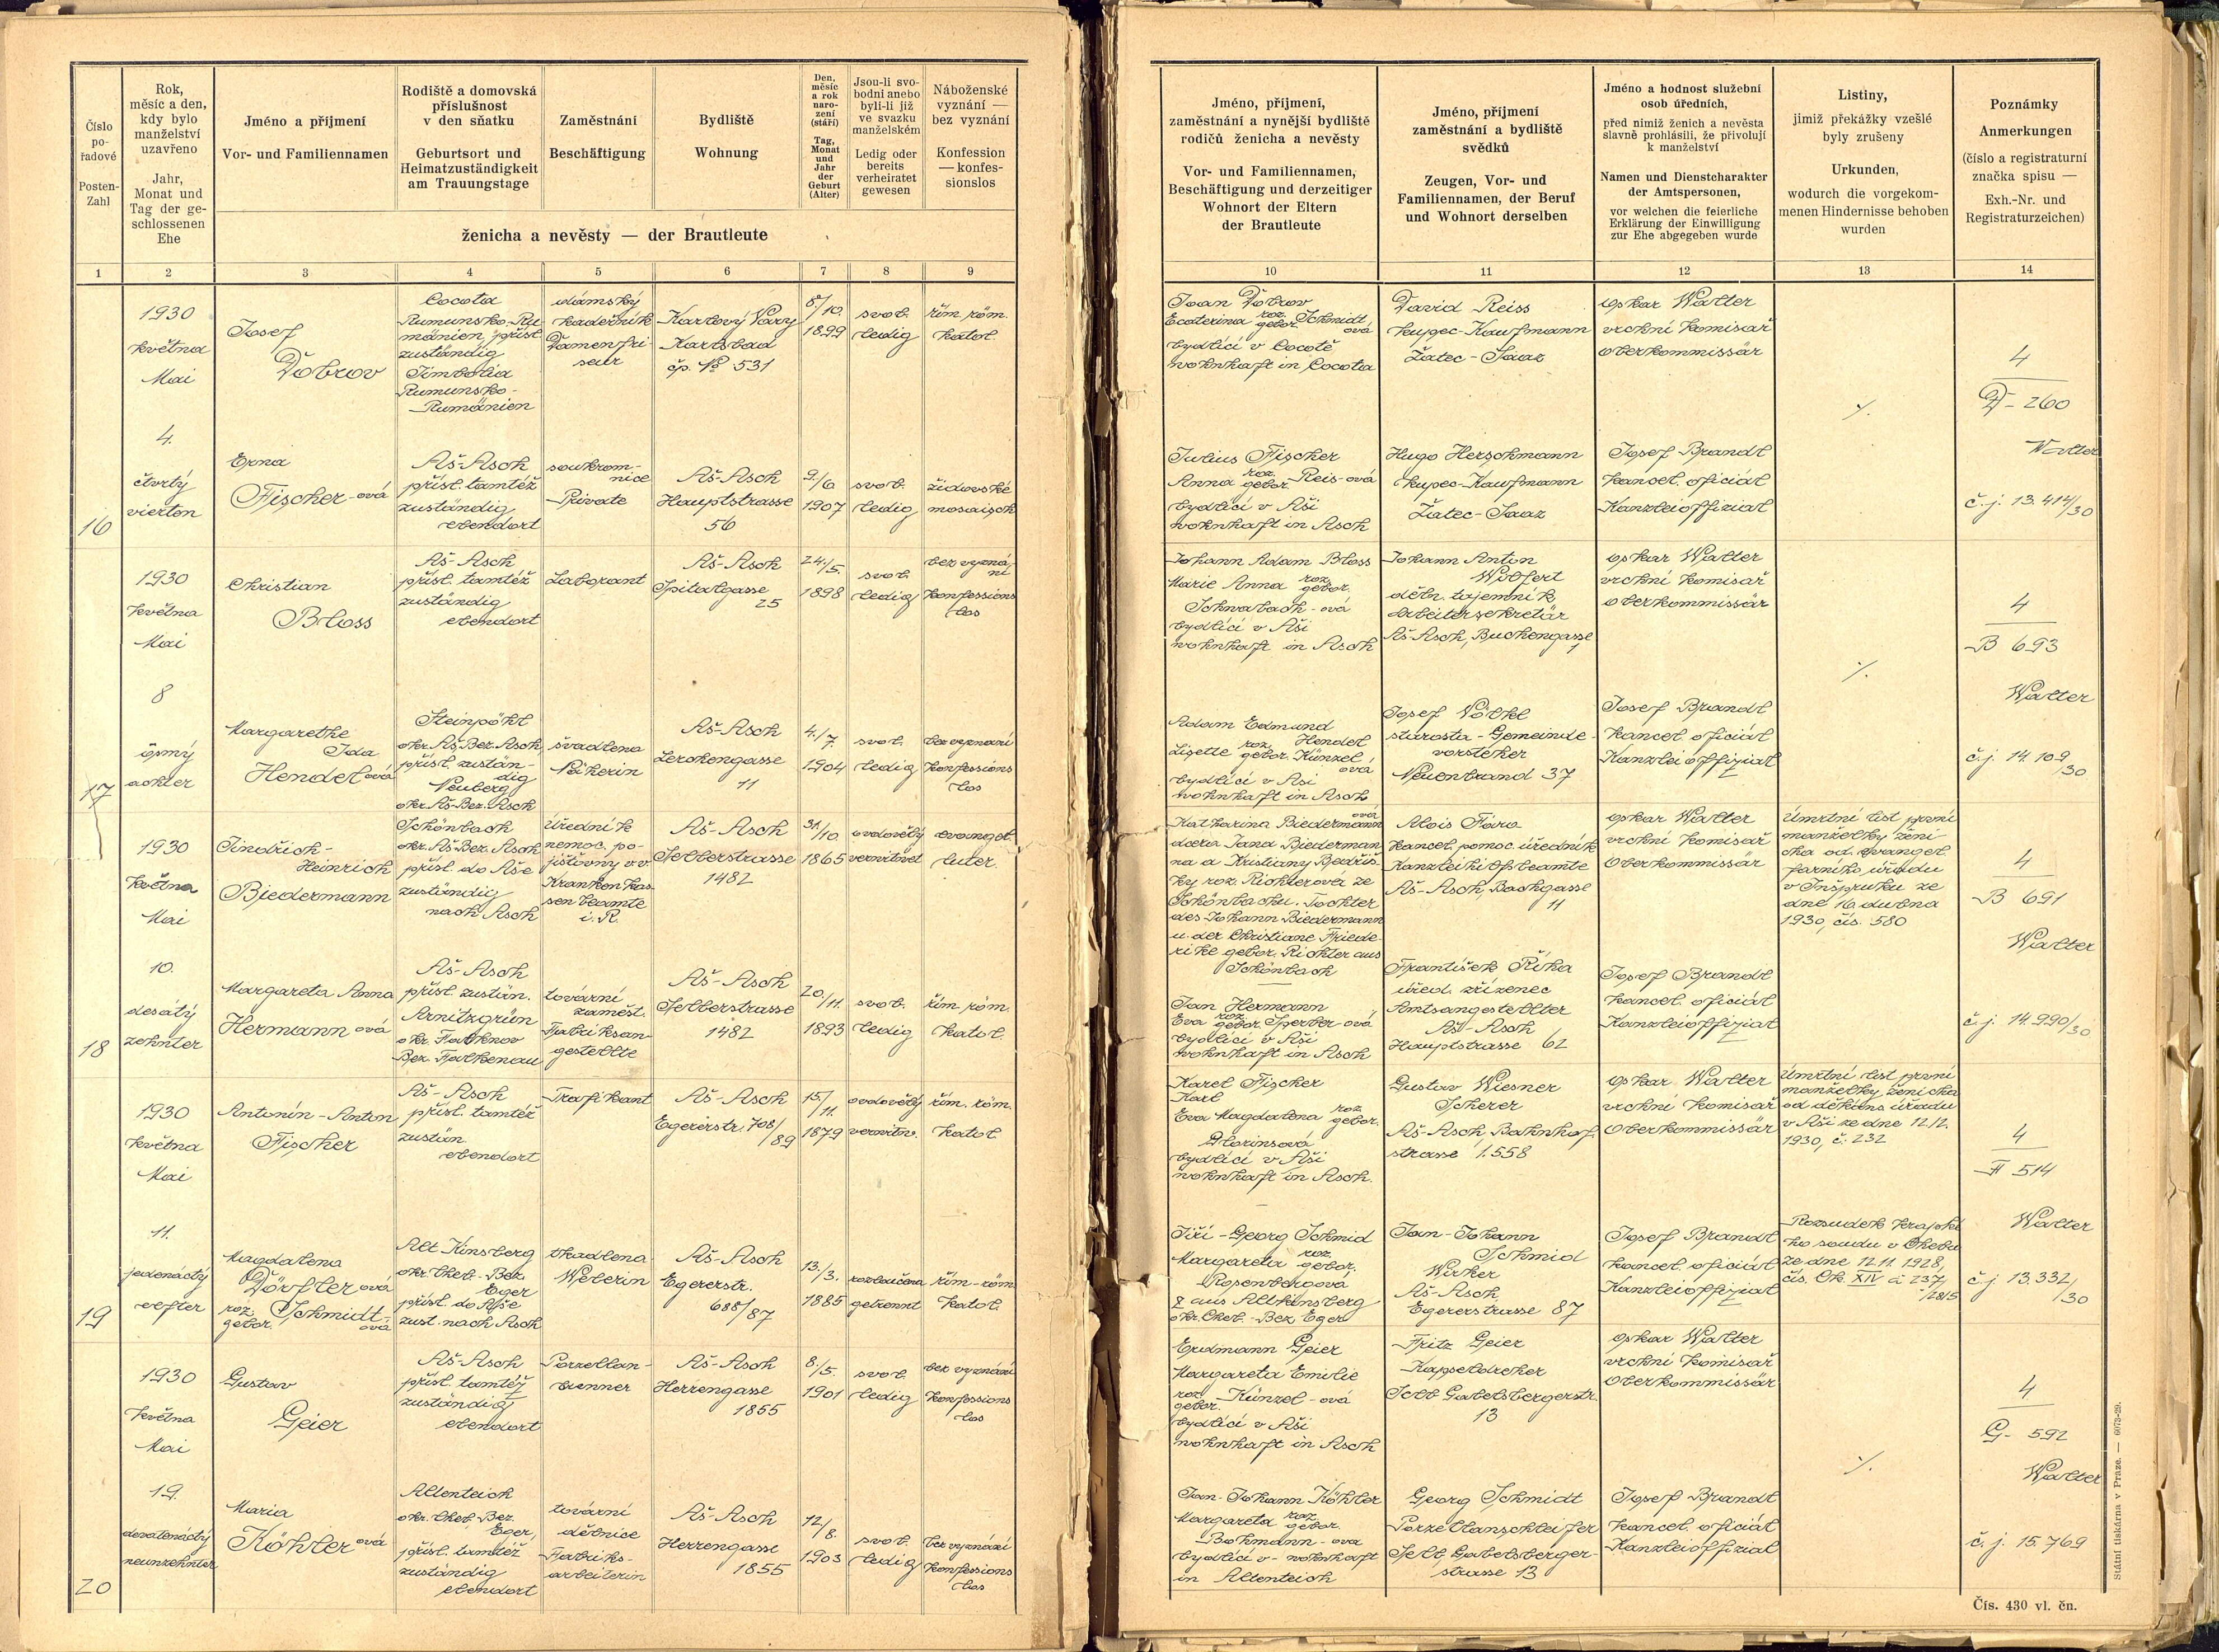 Číslo
po-
řadové
Posten-
Zahl
Rok,
měsíc a den,
kdy bylo
manželství
uzavřeno
Jahr,
Monat und
Tag der ge-
schlossenen
Ehe
Jméno a příjmení
Vor- und Familiennamen
Rodiště a domovská
příslušnost
v den sňatku
Geburtsort und
Heimatzuständigkeit
am Trauungstage
Zaměstnání
Beschäftigung
Bydliště
Wohnung
Den,
měsíc
a rok
naro-
zení
(stáří)
Tag,
Monat
und
Jahr
der
Geburt
(Alter)
Jsou-li svo-
bodni anebo
byli-li již
ve svazku
manželském
Ledig oder
bereits
verheiratet
gewesen
Náboženské
vyznání —
bez vyznání
Konfession
— konfes-
sionslos
ženicha a nevěsty — der Brautleute
1 2 3 4 5 6 7 8 9
16
1930
května
Mai
4.
čtvrtý
vierten
Josef
Dobrov
Cocota
Rumunsko-Ru-
mänien, přísl.
zuständig
Jimbolia
Rumunsko-
Rumänien
dámský
kadeřník
Damenfri-
seur
Karlovy Vary
Karlsbad
čp. No 531
8./10.
1899
svob.
ledig
řím. röm.
katol.
Erna
Fischer-ová
Aš-Asch
přísl. tamtéž
zuständig
ebendort
soukrom-
nice
Private
Aš-Asch
Hauptstrasse
56
9./6
1907
svob.
ledig
židovské
mosaisch
17
1930
května
Mai
8
osmý
achter
Christian
Bloss
Aš-Asch
přísl. tamtéž
zuständig
ebendort
Laborant
Aš-Asch
Spitalgasse
25
24./5.
1898
svob.
ledig
bez vyzná-
ní
konfessions
los
Margarethe
Ida
Hendel ová
Steinpöhl
okr. Aš-Bez. Asch
přísl. zustän-
dig
Neuberg
okr. Aš-Bez. Asch
švadlena
Näherin
Aš-Asch
Lerchengasse
11
4./7.
1904
svob.
ledig
bez vyznání
konfessions
los
18
1930
května
Mai
10.
desátý
zehnter
Jindřich-
Heinrich
Biedermann
Schönbach
okr. Aš-Bez. Asch
přísl. do Aše
zuständig
nach Asch
úředník
nemoc. po-
jišťovny v.v.
Krankenkas-
senbeamte
i. R.
Aš-Asch
Selberstrasse
1482
31./10
1865
ovdovělý
verwitwet
evangel.
luter.
Margareta Anna
Hermann ová
Aš-Asch
přísl. zustän.
Arnitzgrün
okr. Falknov
Bez. Falkenau
tovární
zaměst.
Fabriksan-
gestellte
Aš-Asch
Selberstrasse
1482
20./11.
1893
svob.
ledig
řím. röm.
katol.
19
1930
května
Mai
11.
jedenáctý
elfter
Antonín-Anton
Fischer
Aš-Asch
přísl. tamtéž
zustän
ebendort
Trafikant
Aš-Asch
Egererstr. 708/89
15./11.
1879
ovdovělý
verwitw.
řím. röm.
katol.
Magdalena
Dörfler ová
roz.
gebor. Schmidt-
ová
Alt Kinsberg
okr. Cheb-Bez.
Eger
přísl. do Aše
zust. nach Asch
tkadlena
Weberin
Aš-Asch
Egererstr.
688/87
13./3.
1885
rozloučena
getrennt
řím-röm.
katol.
20
1930
května
Mai
19.
devatenáctý
neunzehnter
Gustav
Geier
Aš-Asch
přísl. tamtéž
zuständig
ebendort
Porzellan-
brenner
Aš-Asch
Herrengasse
1855
8./5.
1901
svob.
ledig
bez vyznání
konfessions
los
Maria
Köhler ová
Altenteich
okr. Cheb, Bez.
Eger,
přísl. tamtéž
zuständig
ebendort
tovární
dělnice
Fabriks-
arbeiterin
Aš-Asch
Herrengasse
1855
12./8.
1903
svob.
ledig
bez vyznání
konfessions
los
Jméno, příjmení,
zaměstnání a nynější bydliště
rodičů ženicha a nevěsty
Vor- und Familiennamen,
Beschäftigung und derzeitiger
Wohnort der Eltern
der Brautleute
Jméno, příjmení
zaměstnání a bydliště
svědků
Zeugen, Vor- und
Familiennamen, der Beruf
und Wohnort derselben
Jméno a hodnost služební
osob úředních,
před nimiž ženich a nevěsta
slavně prohlásili, že přivolují
k manželství
Namen und Dienstcharakter
der Amtspersonen,
vor welchen die feierliche
Erklärung der Einwilligung
zur Ehe abgegeben wurde
Listiny,
jimiž překážky vzešlé
byly zrušeny
Urkunden,
wodurch die vorgekom-
menen Hindernisse behoben
wurden
Poznámky
Anmerkungen
(číslo a registraturní
značka spisu —
Exh.-Nr. und
Registraturzeichen)
10 11 12 13 14
Joan Dobrov
Ecaterina roz.
gebor. Schmidt
ová
bydlící v Cocotě
wohnhaft in Cocota
David Reiss
kupec-Kaufmann
Žatec-Saaz
Oskar Walter
vrchní komisař
Oberkommissär
%.
4
D-260
Walter
č.j. 13.414/30
Julius Fischer
Anna roz.
gebor. Reis-ová
bydlící v Aši
wohnhaft in Asch
Hugo Herschmann
kupec-Kaufmann
Žatec-Saaz
Josef Brandl
kancel. oficiál
Kanzleioffizial
Johann Adam Bloss
Marie Anna roz.
gebor.
Schwabach-ová
bydlící v Aši
wohnhaft in Asch
Johann Anton
Wölfert
dětn. tajemník
Arbeitersekretär
Aš-Asch, Buchengasse
1
Oskar Walter
vrchní komisař
Oberkommissär
%.
4
B 693
Walter
č.j. 14.109/30
Adam Edmund
Hendel
Lisette roz.
gebor. Künzel
ová
bydlící v Aši
wohnhaft in Asch
Josef Völkl
starosta-Gemeinde-
vorsteher
Neuenbrand 37
Josef Brandl
kancel. oficiál
Kanzleioffizial
Katharina Biedermann
ová
dcera Jana Biederman
na a Kristiany Bedřiš-
ky roz. Richterová ze
Schönbachu. Tochter
des Johann Biedermann
u. der Christiane Friede-
rike gebor. Richter aus
Schönbach
Alois Fára
kancel. pomoc. úředník
Kanzleihilfsbeamte
Aš-Asch, Bachgasse
11
Oskar Walter
vrchní komisař
Oberkommissär
Úmrtní list první
manželky ženi-
cha od. evangel.
farního úřadu
v Inšpruku ze
dne 16. dubna
1930, čís. 580
4
B 691
Walter
č.j. 14.990/30
Jan Hermann
Eva roz.
gebor. Sperber-ová
bydlící v Aši
wohnhaft in Asch
František Říha
úřed. zřízenec
Amtsangestellter
Aš-Asch
Hauptstrasse 62
Josef Brandl
kancel. oficiál
Kanzleioffizial
Karel Fischer
Karl
Eva Magdalena roz.
gebor.
bydlící v Aši
wohnhaft in Asch.
Gustav Wiesner
Scherer
Aš-Asch Bahnhof-
strasse 1.558
Oskar Walter
vrchní komisař
Oberkommissär
Úmrtní list první
manželky ženicha
od děkans úřadu
v Aši ze dne 12/2.
1930, č. 232
4
F 514
Walter
č.j. 13.332/30
Jiří-Georg Schmid
Margareta roz.
gebor.
Rosenbergová
z aus Altkinsberg
okr. Cheb-Bez Eger
Jan-Johann
Schmid
Wirker
Aš-Asch
Egererstrasse 87
Josef Brandl
kancel. oficiál
Kanzleioffizial
Rozsudek krajské
ho soudu v Chebu
ze dne 12.11.1928,
čís. Ck XIV a 237/28/5
Erdmann Geier
Margareta Emilie
roz.
gebor. Künzel-ová
bydlící v Aši
wohnhaft in Asch
Fritz Geier
Kapseldreher
Selb Gabelsbergerstr.
13
Oskar Walter
vrchní komisař
Oberkommissär
%.
4
G-592
Walter
č.j. 15.769
Jan-Johann Köhler
Margareta roz.
gebor.
Bohmann-ová
bydlící v-wohnhaft
in Altenteich
Georg Schmidt
Porzellanschleifer
Selb, Gabelsberger-
strasse 13
Josef Brandl
kancel. oficiál
Kanzleioffizial
Státní tiskárna v Praze. — 6073-29.
Čís. 430 vl. čn.